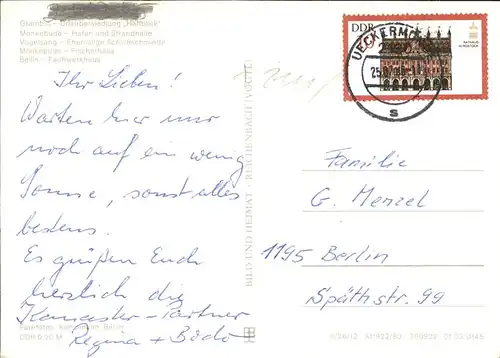 Grambin – Urlaubersiedlung „Haffblick“
Mönkebude – Hafer und Strandhalle
Vogelsang – Ehemalige Schloßschmiede
Mönkebude – Fischerhaus
Berlin – Fachwerkhaus
DDR
RATHAUS
IN ROSTOCK
UECKERM
25.
s
Ihr Lieben!
Warten hier nur
noch auf ein wenig
Sonne, sonst alles
bestens.
Es grüßen Euch
herzlich die
Partner
Regina + Bodo
Familie
G. Menzel
1195 Berlin
Späthstr. 99
BILD UND HEIMAT · REICHENBACH (VOGTL)
Berlin
DDR 0,20 M